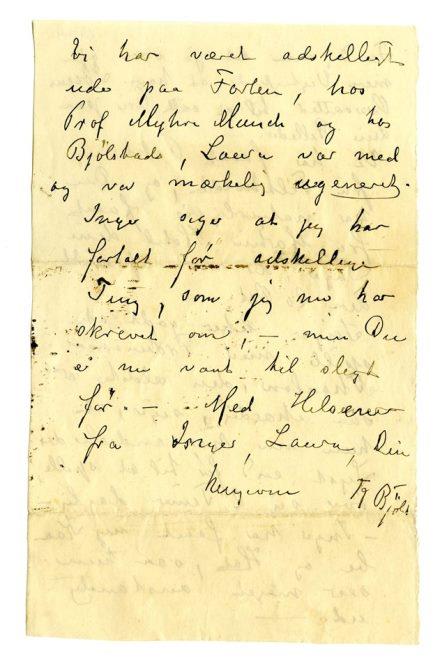 Vi har været adskelligt
ude paa Farten, hos
Prof Myhre Munch og hos
Bjölstads, Laura var med
og var mærkelig ugeneret.
Inger siger at jeg har
fortalt før adskellige
Ting, som jeg nu har
skrevet om, – men Du
er nu vant til sligt
før. – Med Hilsener
fra Inger, Laura, Din
hengivne